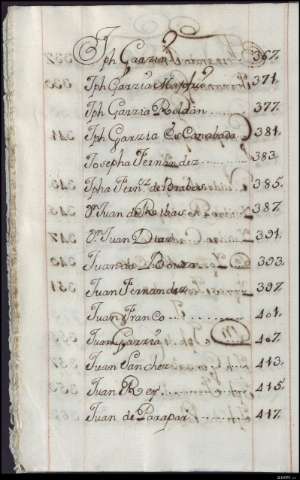 Jph Garzia 367.
Jph Garzia 371.
Jph Garzia Roldán 377.
Jph Garzia Escanabada 381.
Josepha Fernandez 383.
Jpha Fernz. de Brabos 385.
Dn. Juan de Ribas 387.
Dn. Juan Duarte 391.
Juan de Bouza 393.
Juan Fernandez 397.
Juan Franco 401.
Juan Garzia 407.
Juan Sanchez 413.
Juan Rey 415.
Juan de Parapar 417.